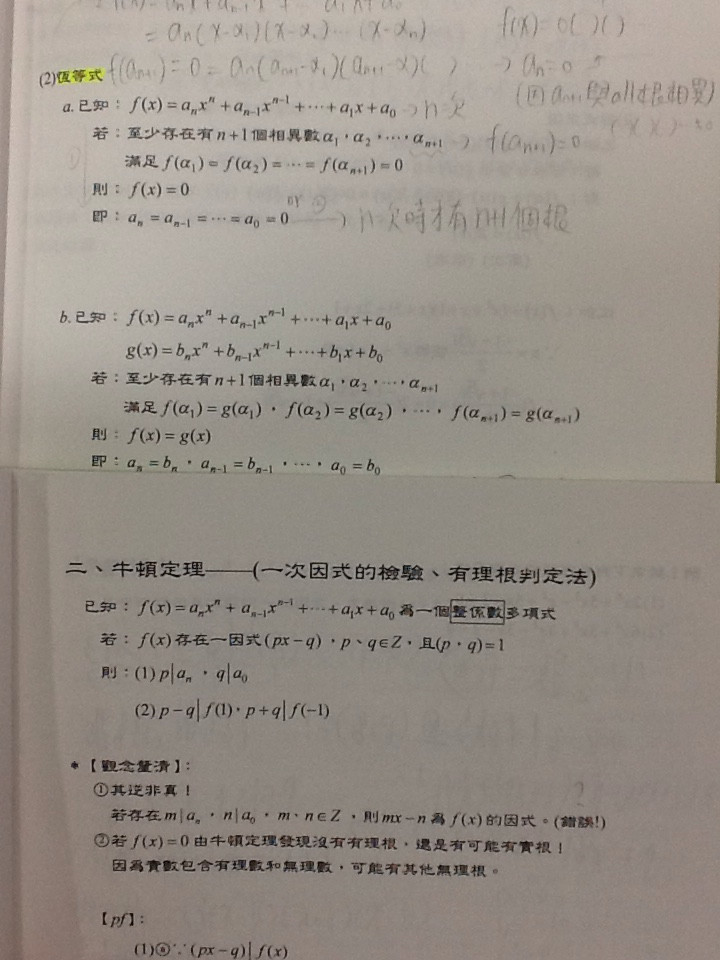 = aₙ(x-α₁)(x-α₂)⋯(x-αₙ)  f(x)=0( )( )
(2)恆等式 f(aₙ₊₁)=0=aₙ(aₙ₊₁-α₁)(aₙ₊₁-α)( ) → aₙ=0
a. 已知：f(x)=aₙxⁿ+aₙ₋₁xⁿ⁻¹+⋯+a₁x+a₀ → n次 (因aₙ₊₁與all根相異)
若：至少存在有n+1個相異數α₁，α₂，⋯，αₙ₊₁ → f(aₙ₊₁)=0
滿足f(α₁)=f(α₂)=⋯=f(αₙ₊₁)=0
則：f(x)=0
即：aₙ=aₙ₋₁=⋯=a₀=0 → n次時才有n+1個根
b. 已知：f(x)=aₙxⁿ+aₙ₋₁xⁿ⁻¹+⋯+a₁x+a₀
g(x)=bₙxⁿ+bₙ₋₁xⁿ⁻¹+⋯+b₁x+b₀
若：至少存在有n+1個相異數α₁，α₂，⋯，αₙ₊₁
滿足f(α₁)=g(α₁)，f(α₂)=g(α₂)，⋯，f(αₙ₊₁)=g(αₙ₊₁)
則：f(x)=g(x)
即：aₙ=bₙ，aₙ₋₁=bₙ₋₁，⋯，a₀=b₀
二、牛頓定理——(一次因式的檢驗、有理根判定法)
已知：f(x)=aₙxⁿ+aₙ₋₁xⁿ⁻¹+⋯+a₁x+a₀為一個整係數多項式
若：f(x)存在一因式(px-q)，p、q∈Z，且(p，q)=1
則：(1) p|aₙ，q|a₀
(2) p-q|f(1)，p+q|f(-1)
*【觀念釐清】：
①其逆非真！
若存在m|aₙ，n|a₀，m、n∈Z，則mx-n為f(x)的因式。(錯誤!)
②若f(x)=0由牛頓定理發現沒有有理根，還是有可能有實根！
因為實數包含有理數和無理數，可能有其他無理根。
【pf】：
(1)ⓐ∵(px-q)|f(x)